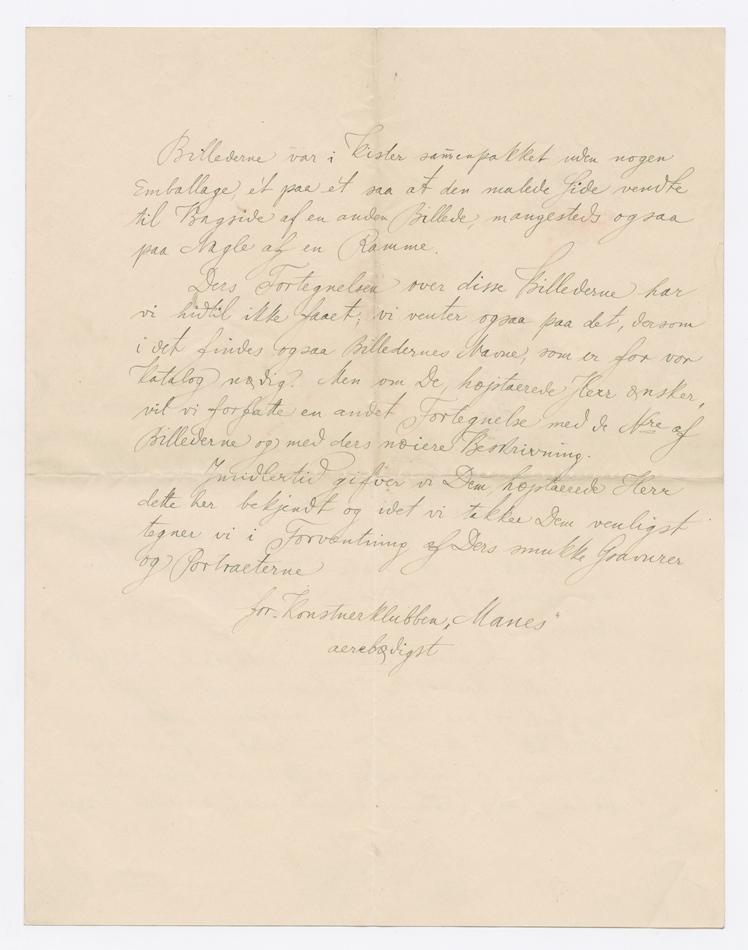 Billederne var i Kister sam̄enpakket uden nogen
Emballage, ét paa ét saa at den malede Side vendte
til Bagside af en anden Billede, mangesteds ogsaa
paa Nagle af en Ramme.
Ders Fortegnelsen over disse Billederne har
vi hidtil ikke faaet; vi venter ogsaa paa det, dersom
i det findes ogsaa Billedernes Navne, som er for vor
Katalog nœdig? Men om De, hœjtaerede Herr œnsker,
vil vi forfatte en andet Fortegnelse med de Nre af
Billederne og med ders nœiere Beskrivning.
Imidlertid gifver vi Dem, hœjtaerede Herr
dette her bekjendt og idet vi takker Dem venligst
tegner vi i Forventning af Ders smukke Gravurer
og Portraeterne
for Konstnerklubben „Manes“
aerebœdigst